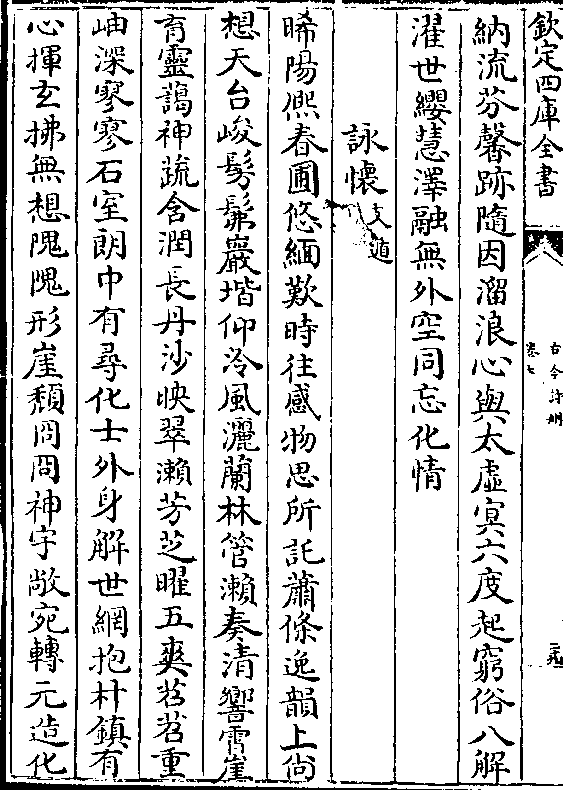 欽定四庫全書
古今詩刪
卷七
納流芬馨跡隨因溜浪心與太虛㝠六度起窮俗八解
濯世纓慧澤融無外空同忘化情
詠懷支遁
晞陽熈春圃悠緬歎時往感物思所託蕭條逸韻上尚
想天台峻髣髴巖堦仰泠風灑蘭林管瀨奏清響霄崖
育靈藹神蔬含潤長丹沙映翠瀨芳芝曜五爽苕苕重
岫深寥寥石室朗中有尋化士外身解世網抱朴鎮有
心揮玄拂無想隗隗形崖頹冏冏神宇敞宛轉元造化